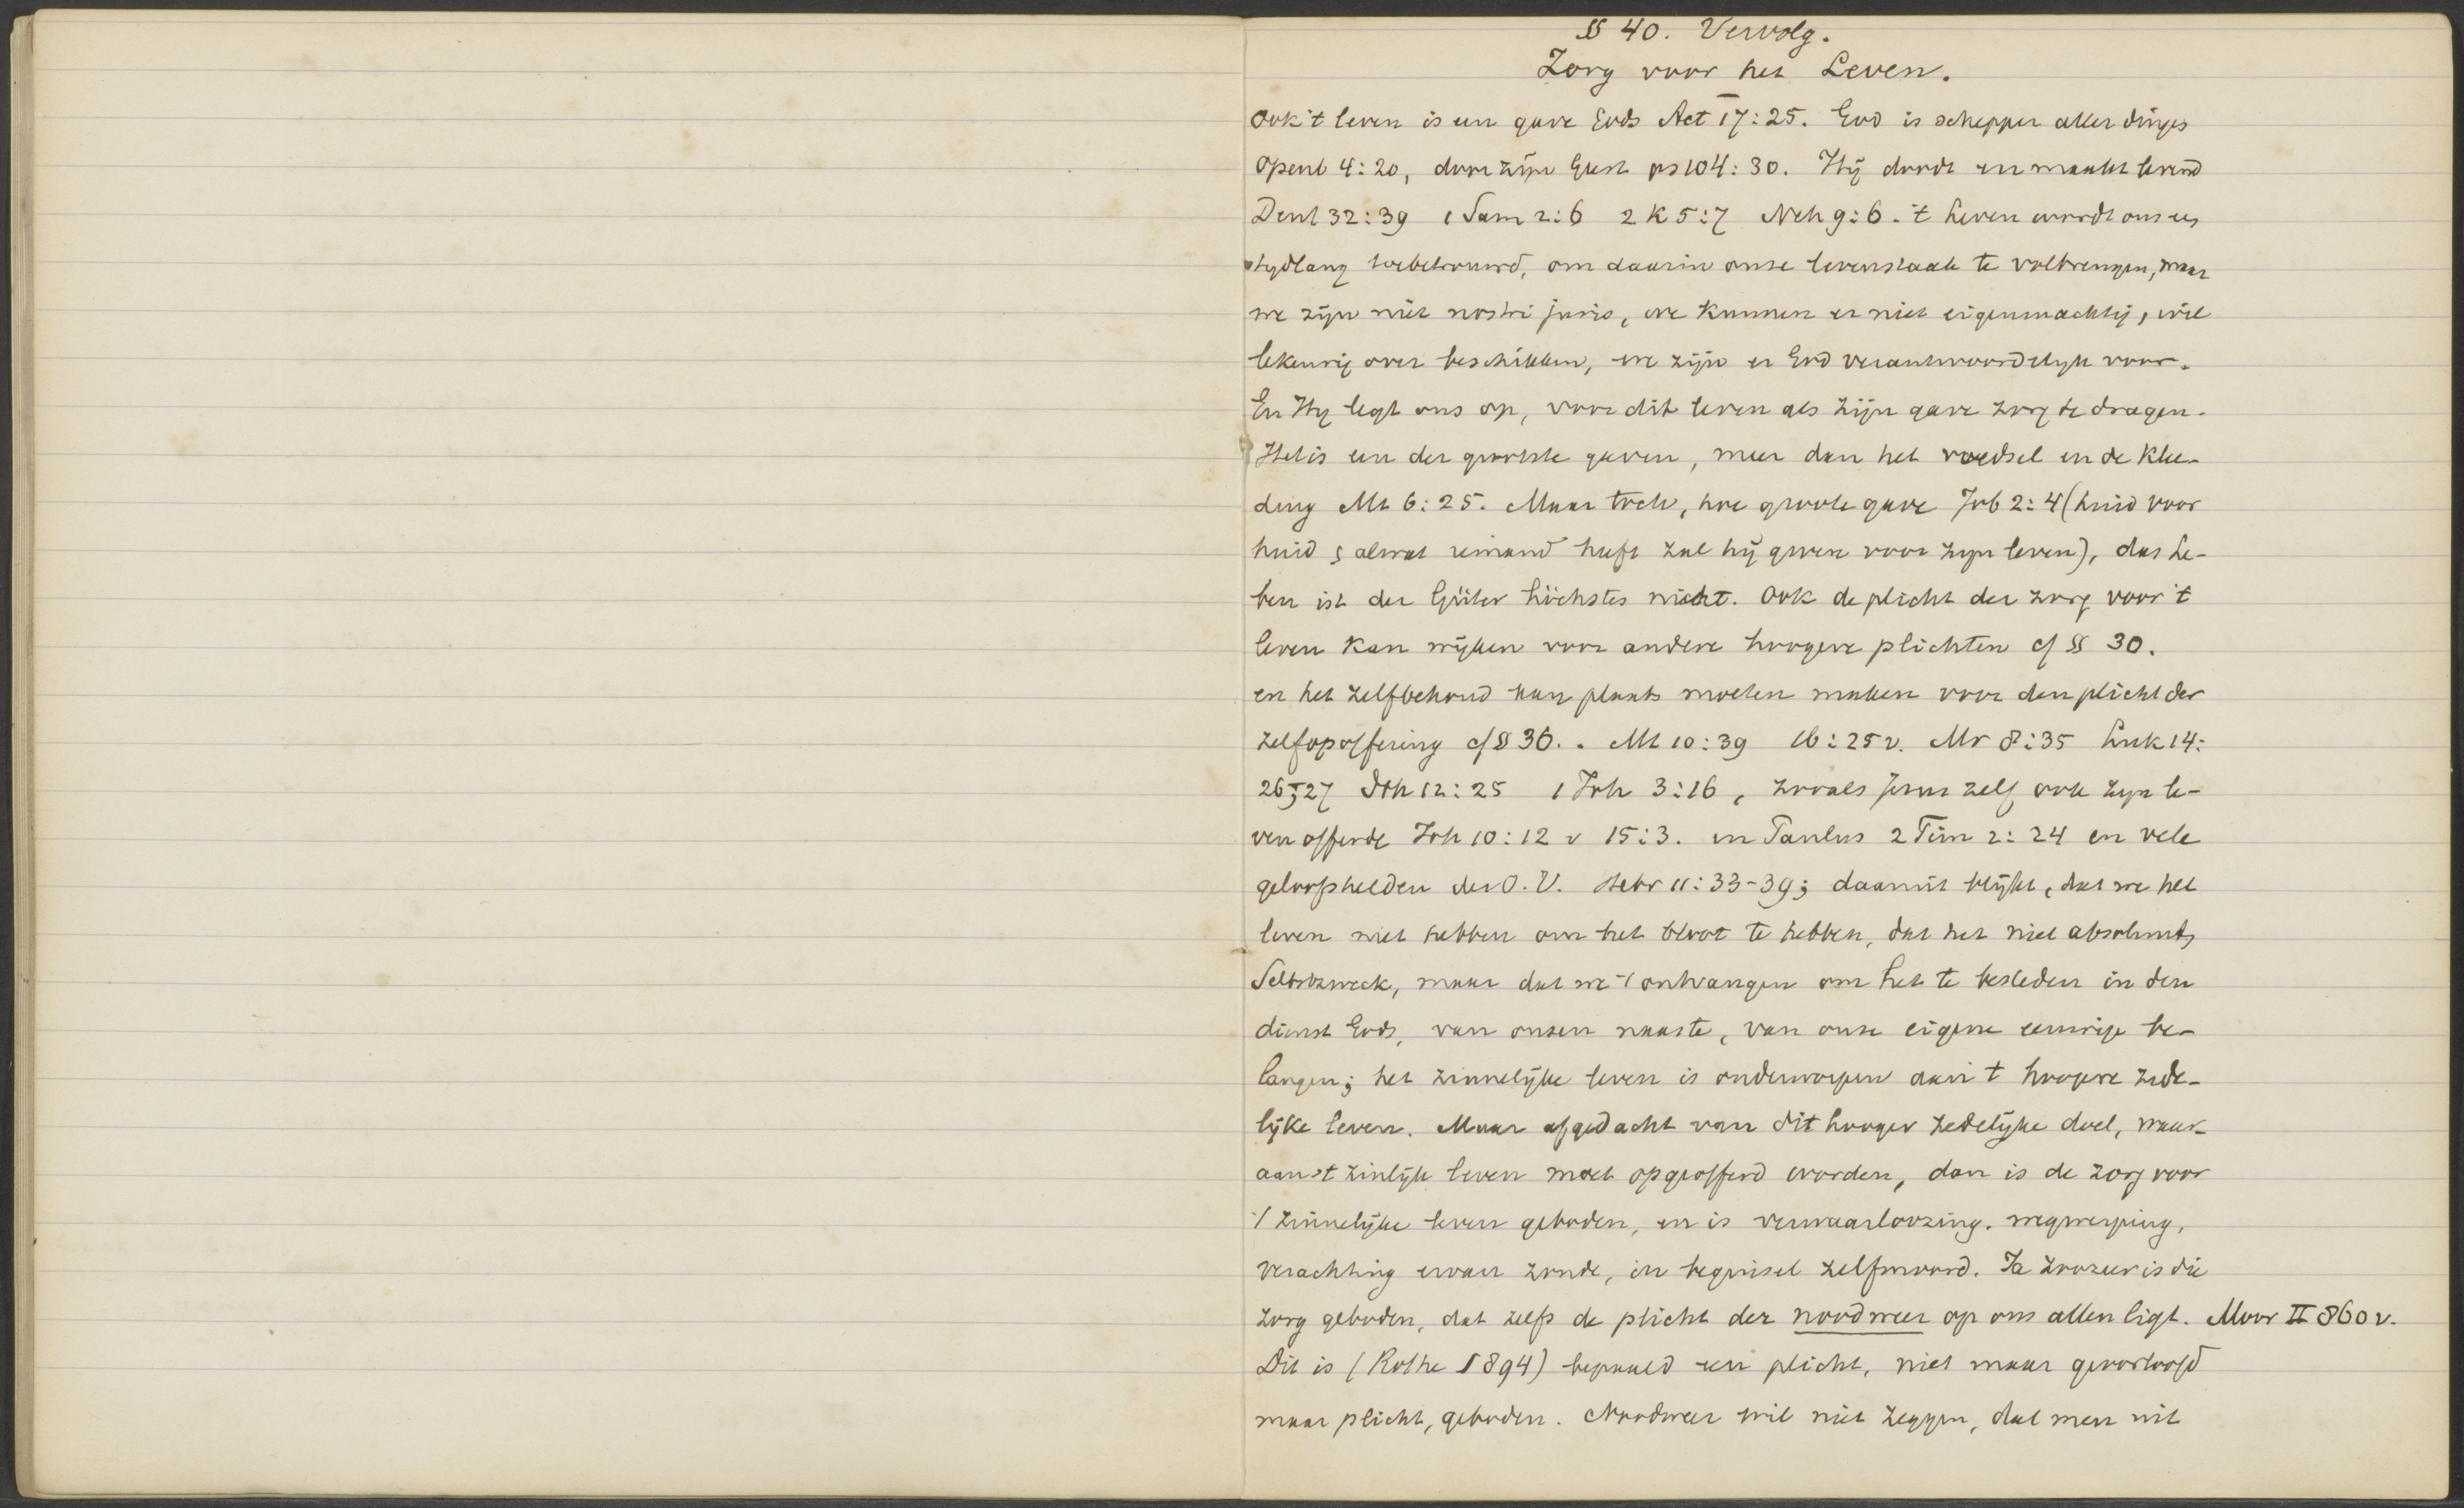 § 40. Vervolg.
Zorg voor het Leven.
Ook 't leven is een gave Gods Act 17:25. God is schepper aller dinges
Openb 4:20, door zijn Geest ps 104:30. Hij doodt en maakt levend
Deut 32:39 1 Sam 2:6 2 K 5:7 Neh 9:6. 't Leven wordt ons een
tijdlang toebetrouwd, om daarin onze levenstaak te volbrengen, maar
we zijn niet nostri juris, we kunnen er niet eigenmachtig, wil
lekeurig over beschikken, we zijn er God verantwoordelijk voor.
En Hij legt ons op, voor dit leven als zijn gave zorg te dragen.
Het is een der grootste gaven, meer dan het voedsel en de klee-
ding Mt 6:25. Maar toch, hoe groote gave Job 2:4 (huid voor
huid, alwat iemand heeft zal hij geven voor zijn leven), das Le-
ben ist der Güter höchstes nicht. Ook de plicht der zorg voor 't
leven kan wijken voor andere hoogere plichten cf § 30.
en het zelfbehoud kan plaats moeten maken voor den plicht der
zelfopoffering cf § 36. . Mt 10:39 16:25 v. Mr 8:35 Luk 14:
26, 27 Joh 12:25 1 Joh 3:16, zooals Jezus zelf ook zijn le-
ven offerde Joh 10:12 v 15:3. en Paulus 2 Tim 2:24 en vele
geloofshelden des O.V. Hebr 11:33-39; daaruit blijkt, dat we het
leven niet hebben om het bloot te hebben, dat het niet absoluut,
Selbstzweck, maar dat we 't ontvangen om het te besteden in den
dienst Gods, van onzen naaste, van onze eigene eeuwige be-
langen; het zinnelijke leven is onderworpen aan 't hoogere zede-
lijke leven. Maar afgedacht van dit hooger zedelijke doel, waar-
aan 't zinlijk leven moet opgeofferd worden, dan is de zorg voor
't zinnelijke leven geboden, en is verwaarloozing, wegwerping,
verachting ervan zonde, in beginsel zelfmoord. Ja zoozeer is die
zorg geboden, dat zelfs de plicht der noodweer op ons allen ligt. Moor II 860 v.
Dit is (Rothe § 894) bepaald een plicht, niet maar geoorloofd
maar plicht, geboden. Noodweer wil niet zeggen, dat men uit